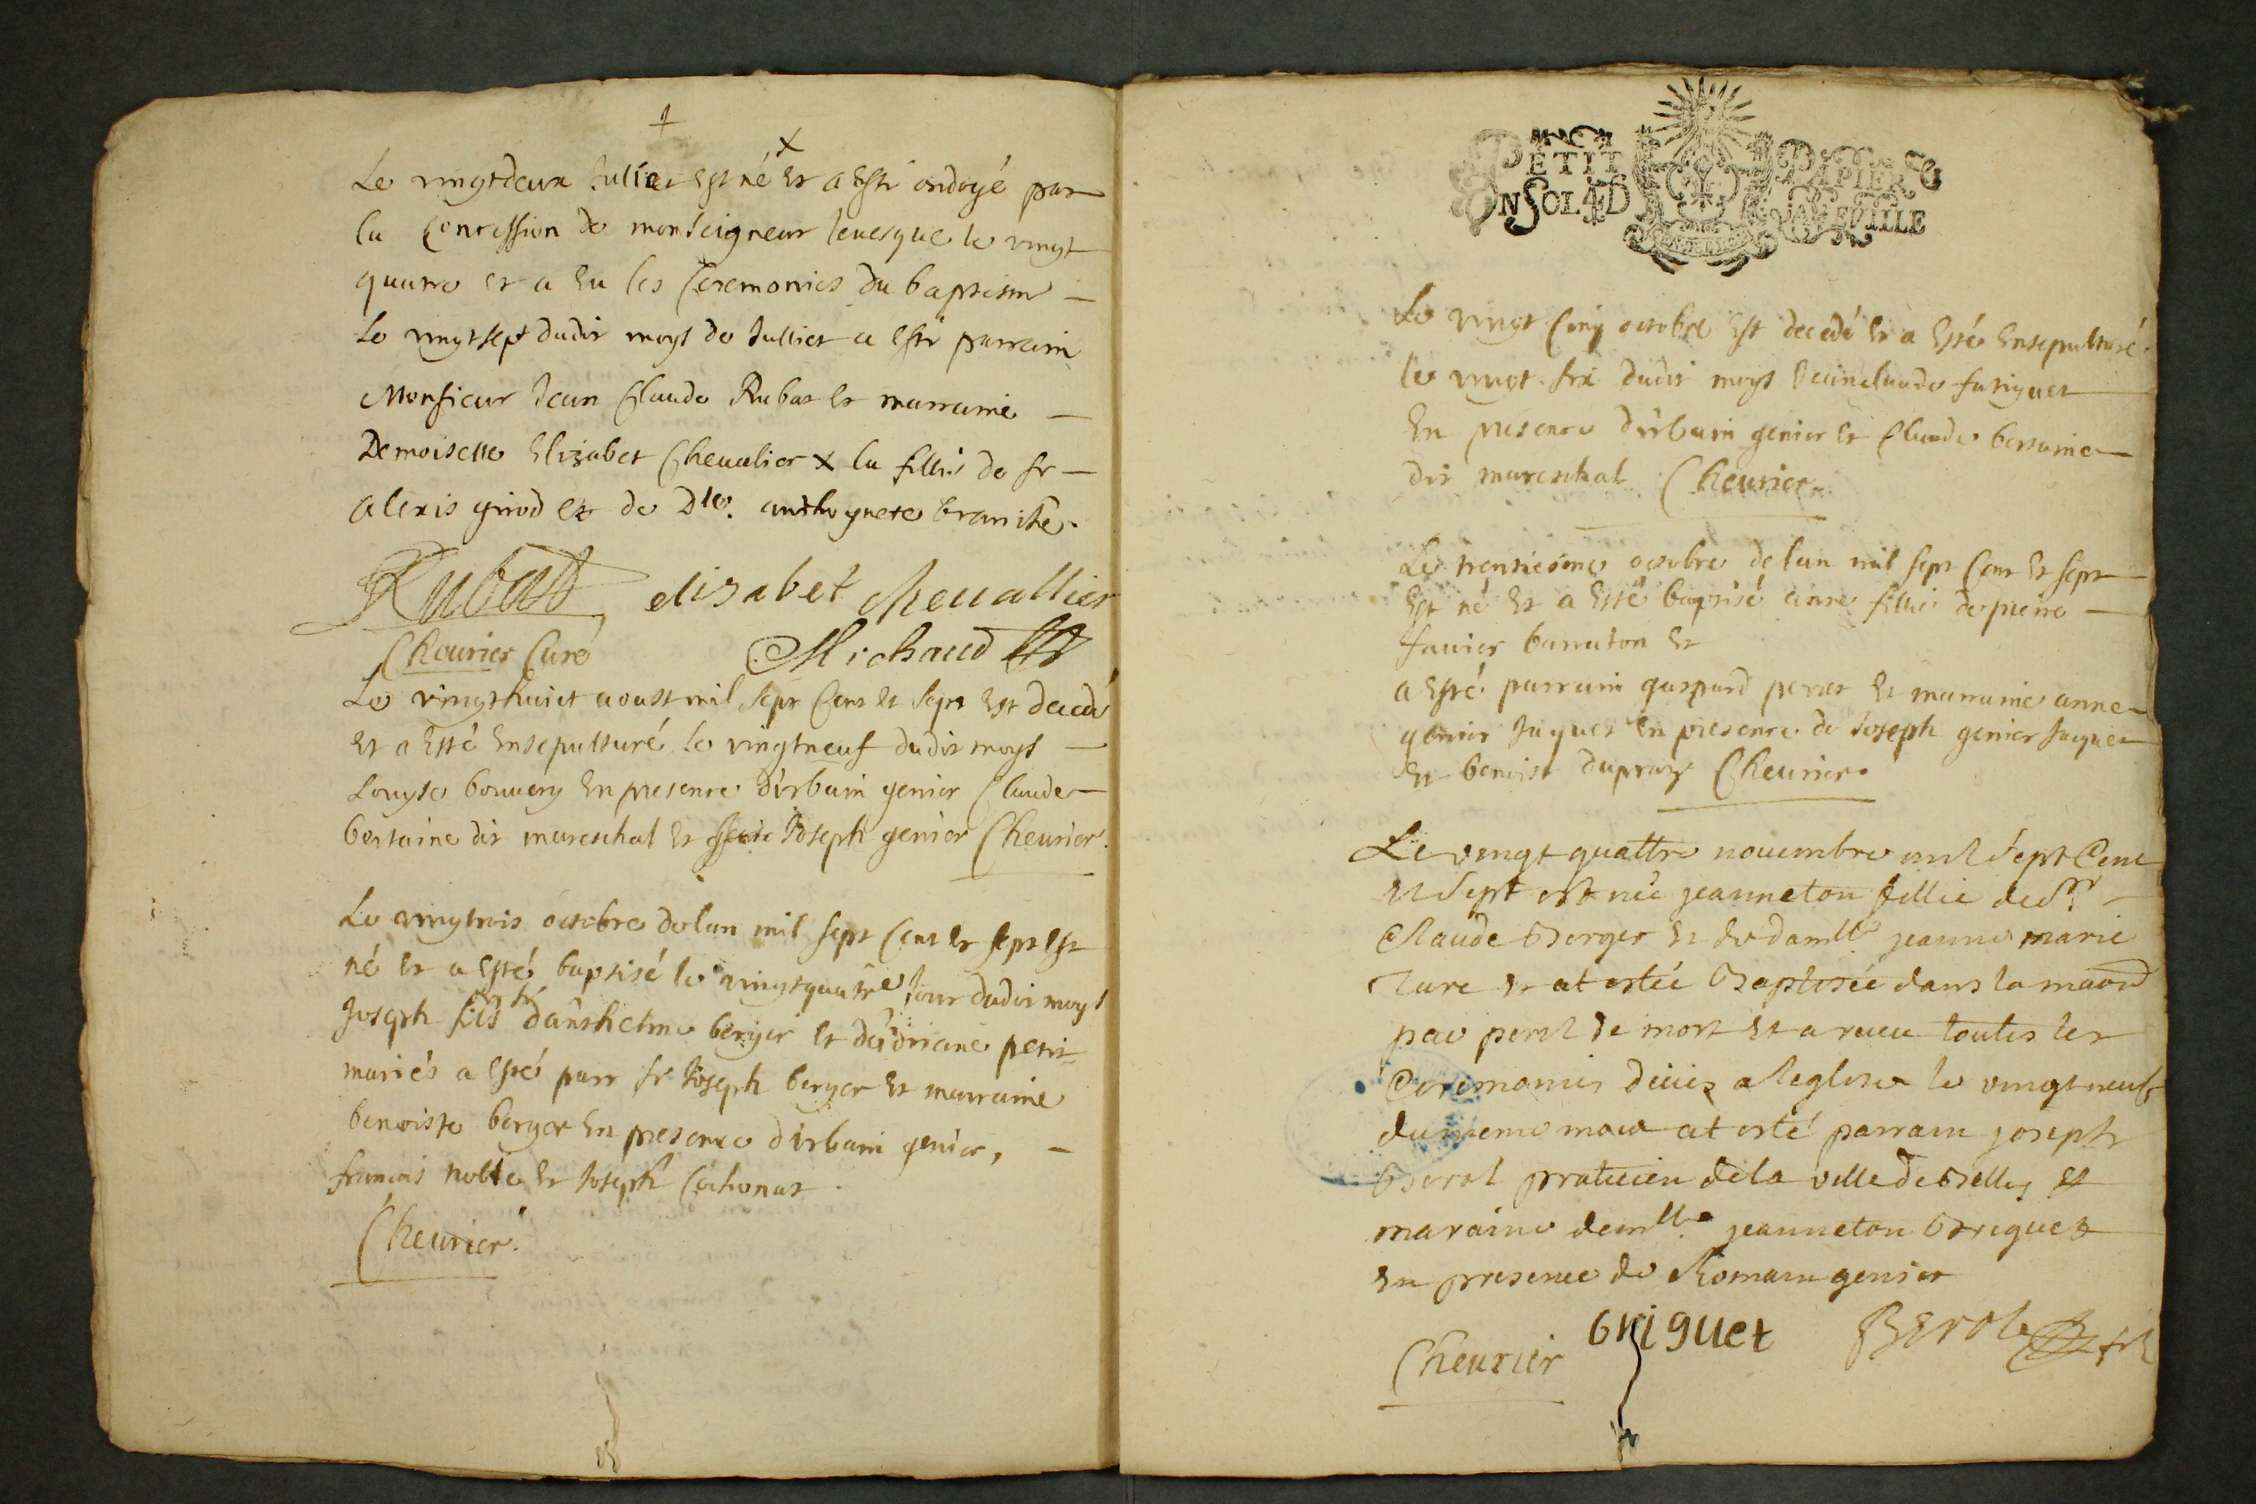 Le vingtdeux Julliet est né x et a esté ondoyé par
la concession de monseigneur levesque le vingt
quatre et a eu les ceremonies du baptesme —
le vingtsept dudit moys de Julliet a esté parrain
Monsieur Jean Claude Rubat et marraine —
Demoiselle Elizabet Chevalier x la fillie de sr —
alexis girod et de Dle. anthoynete branche.
Rubat elisabet chevallier
Cheurier Curé Michaud
Le vingthuict aoust mil sept cent et sept est decedé
et a esté ensepulturé le vingtneuf dudit moys —
Louyse bouvery en presence d'irbain genier Claude —
bertaine dit mareschal et Joseph genier Cheurier.
Le vingtrois octobre de lan mil sept cent et sept est
né et a esté baptisé le vingtquatre jour dudit moys
Joseph fils de sr anthelme berger et d'adriane petit
mariés a esté parr sr Joseph berger et marraine
benoiste berger en presence d'irbain genier, —
francois noble et Joseph Cochonat.
Cheurier.
PETIT PAPIER
UN SOL 4 D LA FEUILLE
Le vingt cinq octobre est decedé et a esté ensepulturé
le vingt six dudit moys Jeanclaude fatiguet
en presence d'irbain genier et Claude bertaine
dit mareschal Cheurier
Le trentiesme octobre de lan mil sept cent et sept —
est né et a esté baptisé anne fillie de pierre —
favier barraton et
a esté parrain gaspard perret et marraine anne
genier Juquet en presence de Joseph genier Juquet
et benoist dupraz Cheurier.
Le vingt quattre novembre mil sept cent
et sept est née jeanneton fillie de sr
Claude Berger et de damlle jeanne marie
et at estée Baptisée dans la maison
par peril de mort et a receu toutes les
Ceremonies dicies a leglise le vingt neuf
du meme mois at esté parrain joseph
Berol praticien de la ville de Belley et
maraine demlle jeanneton Briguet
en presence de Romain genier
Cheurier briguet Berol